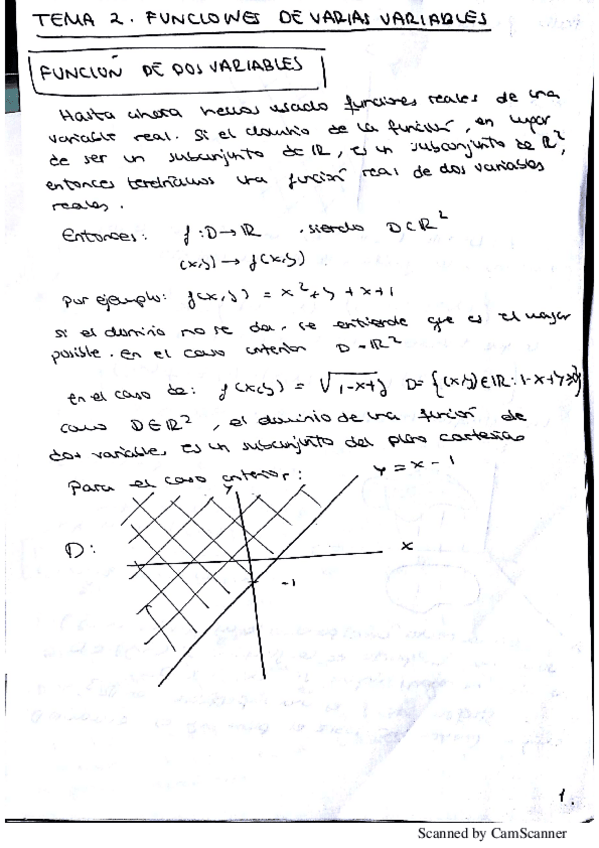 TEMA 2. FUNCIONES DE VARIAS VARIABLES
FUNCIÓN DE DOS VARIABLES
Hasta ahora hemos usado funciones reales de una
variable real. Si el dominio de la función, en lugar
de ser un subconjunto de ℝ, es un subconjunto de ℝ²,
entonces tendríamos una función real de dos variables
reales.
Entonces: f: D → ℝ , siendo D⊂ℝ²
(x,y) → f(x,y)
Por ejemplo: f(x,y) = x² + y + x + 1
si el dominio no se da, se entiende que es el mayor
posible. En el caso anterior D = ℝ²
En el caso de: f(x,y) = √1-x+y D = {(x,y)∈ℝ: 1-x+y≥0}
como D∈ℝ², el dominio de una función de
dos variables, es un subconjunto del plano cartesiano
Para el caso anterior:
y = x - 1
y
D:
x
-1
1.
Scanned by CamScanner